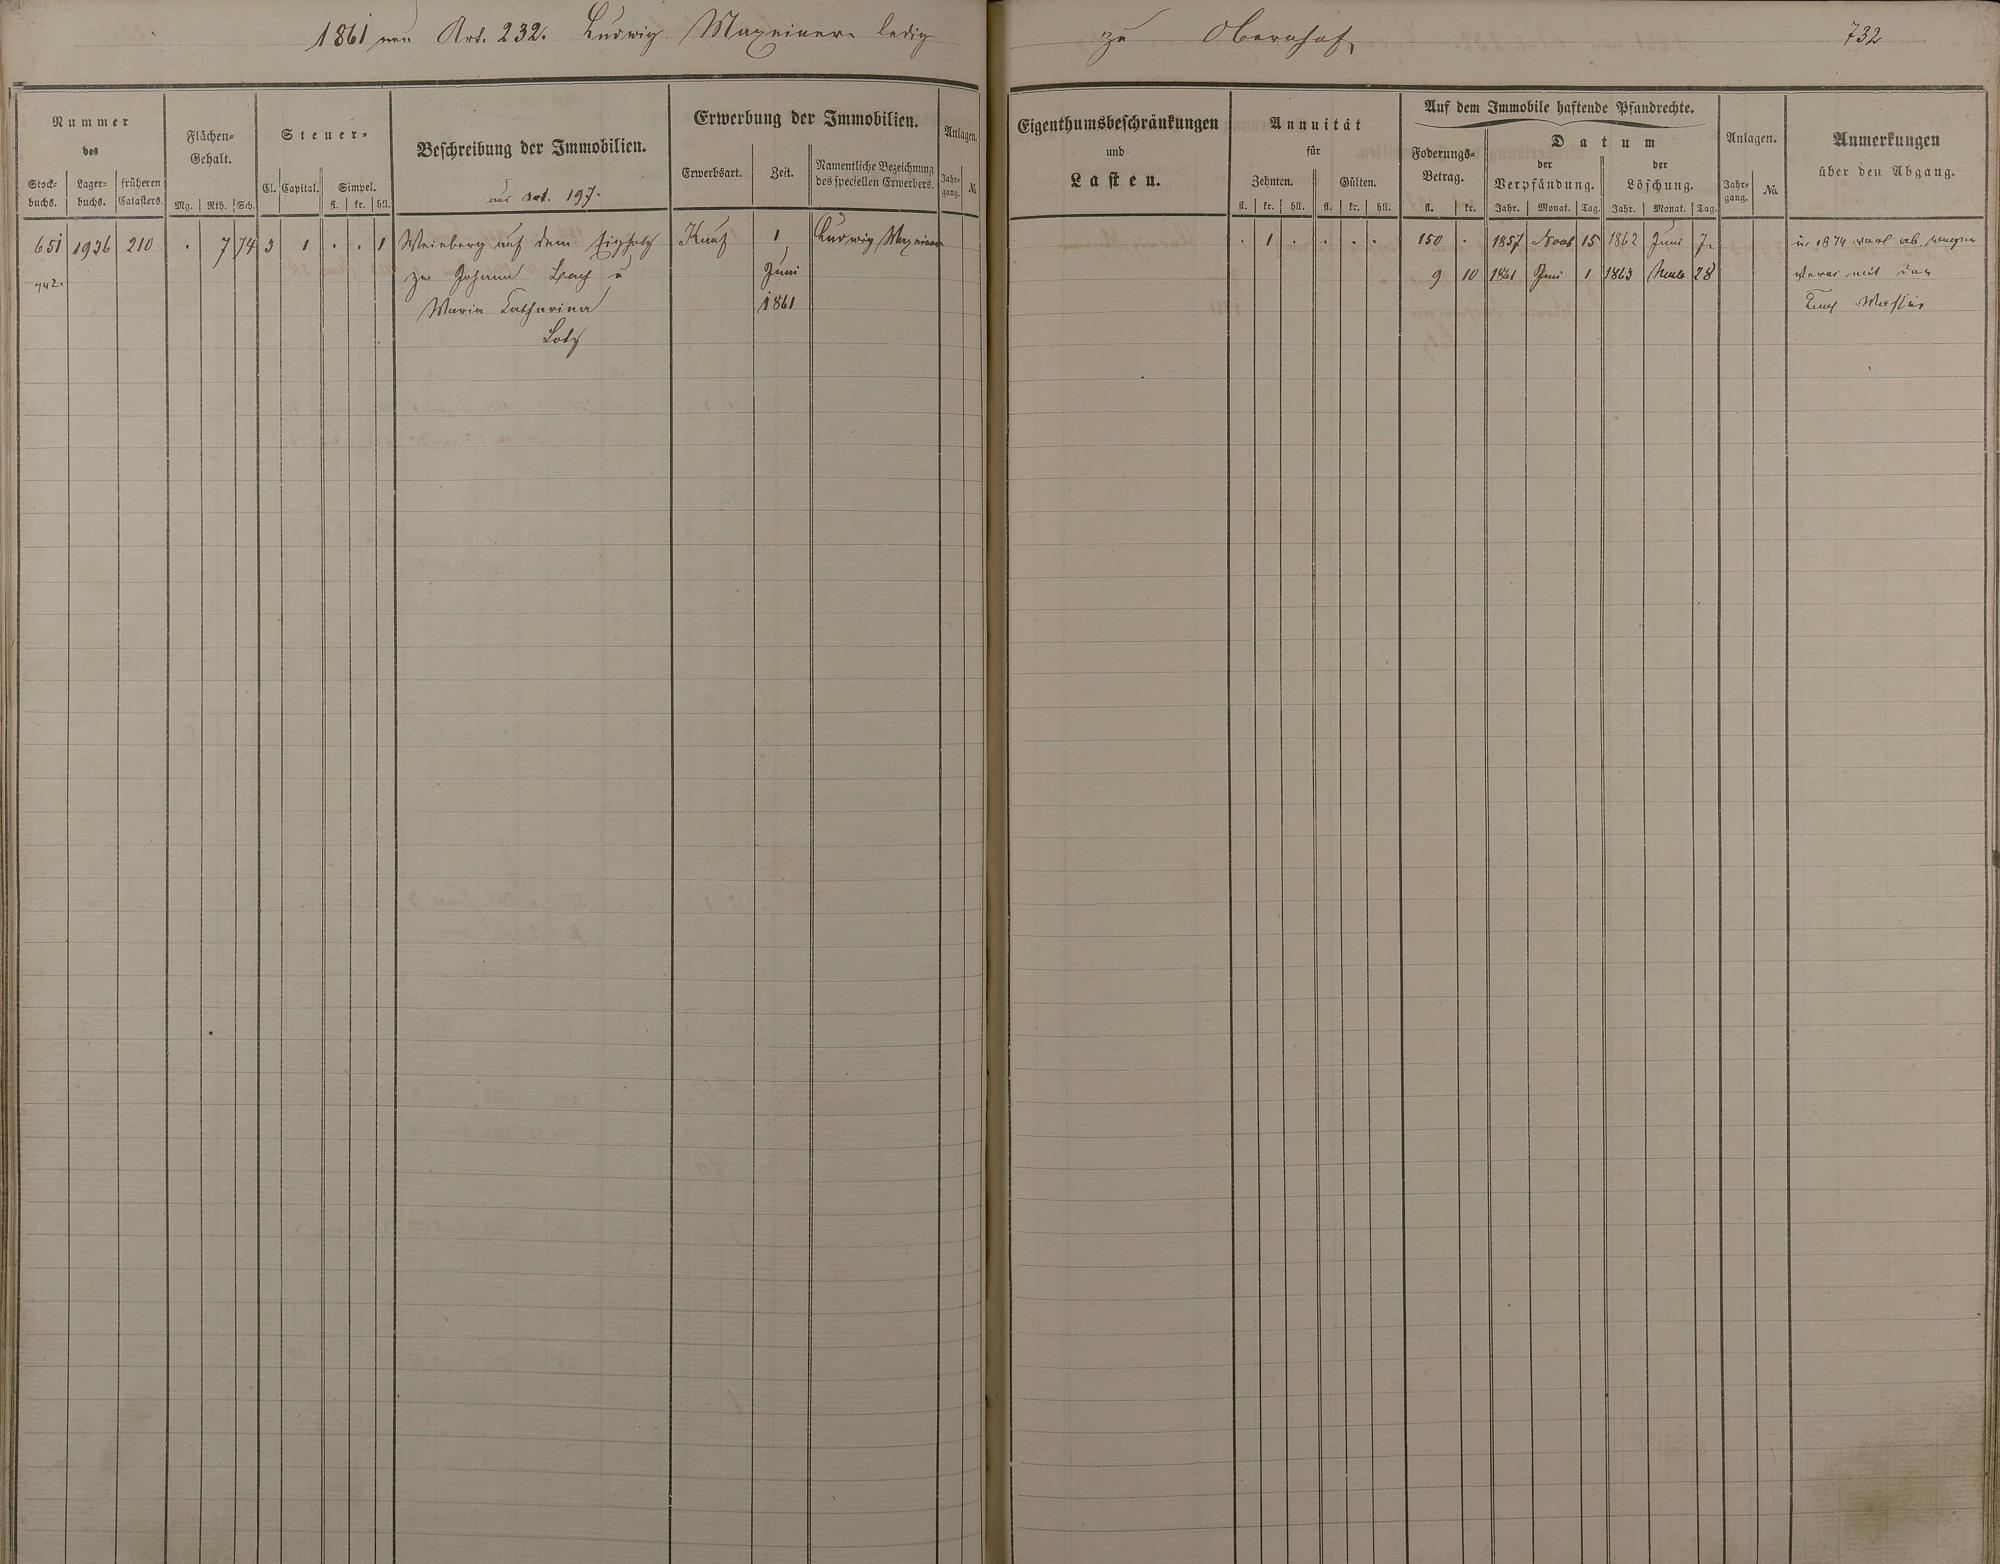 1861 neu Art. 232. Ludwig Maxeiner ledig zu Obernhof 732
Nummer
des
Stock-buchs. Lager-buchs. früheren Catasters.
Flächen-Gehalt.
Mg. Rth. Sch.
Steuer-
Cl. Capital. Simpel.
fl. kr. hll.
Beschreibung der Immobilien.
aus Art. 197.
Erwerbung der Immobilien.
Erwerbsart. Zeit. Namentliche Bezeichnung des speciellen Erwerbers.
Anlagen.
Jahr-gang. №
Eigenthumsbeschränkungen
und
Lasten.
Annuität
für
Zehnten. Gülten.
fl. kr. hll. fl. kr. hll.
Auf dem Immobile haftende Pfandrechte.
Foderungs-Betrag.
fl. kr.
Datum
der Verpfändung. der Löschung.
Jahr. Monat. Tag. Jahr. Monat. Tag.
Anlagen.
Jahr-gang. No.
Anmerkungen
über den Abgang.
651 1936 210 . 7 74 3 1 . . 1 Weinberg auf dem Kauf 1 Ludwig Maxeiner . 1 . . . . 150 . 1857 15 1862 Juni 7. in 1874 ab, wegen
742. zw Johann Bach u Juni 9 10 1861 Juni 1 1863 28 mit den
Maria Catharina 1861
Lotz